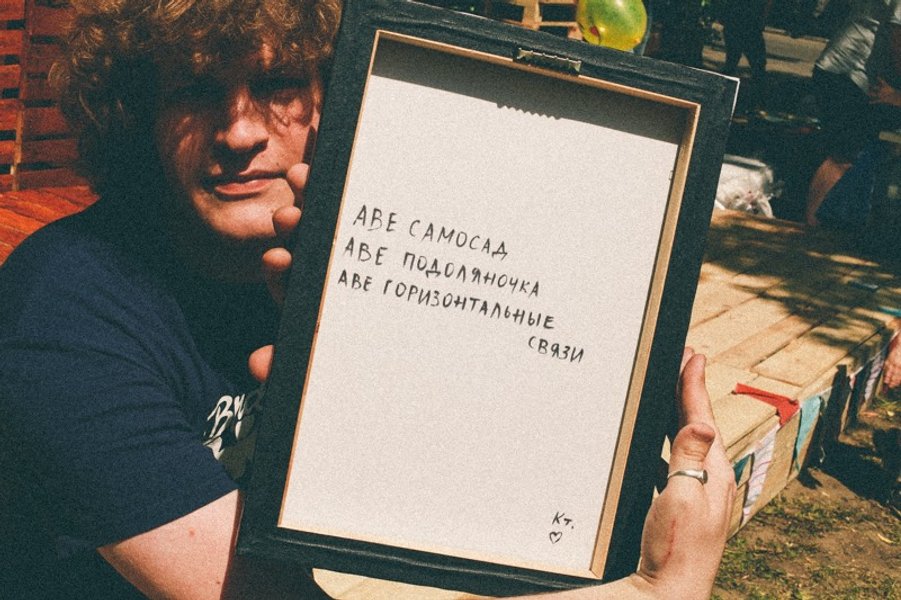 АВЕ САМОСАД
АВЕ ПОДОЛЯНОЧКА
АВЕ ГОРИЗОНТАЛЬНЫЕ
СВЯЗИ
Кт.